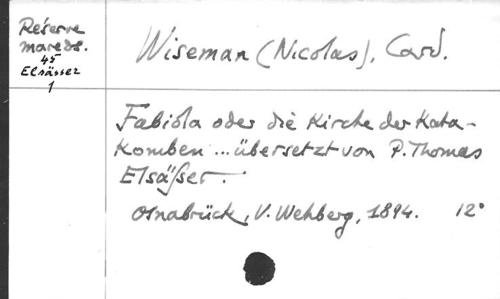 Réserve
mareds.
45
Elsässer
1
Wiseman (Nicolas), Card.
Fabiola oder die Kirche der Kata-
komben ... übersetzt von P. Thomas
Elsäßer.
Osnabrück, V. Wehberg, 1894. 12°